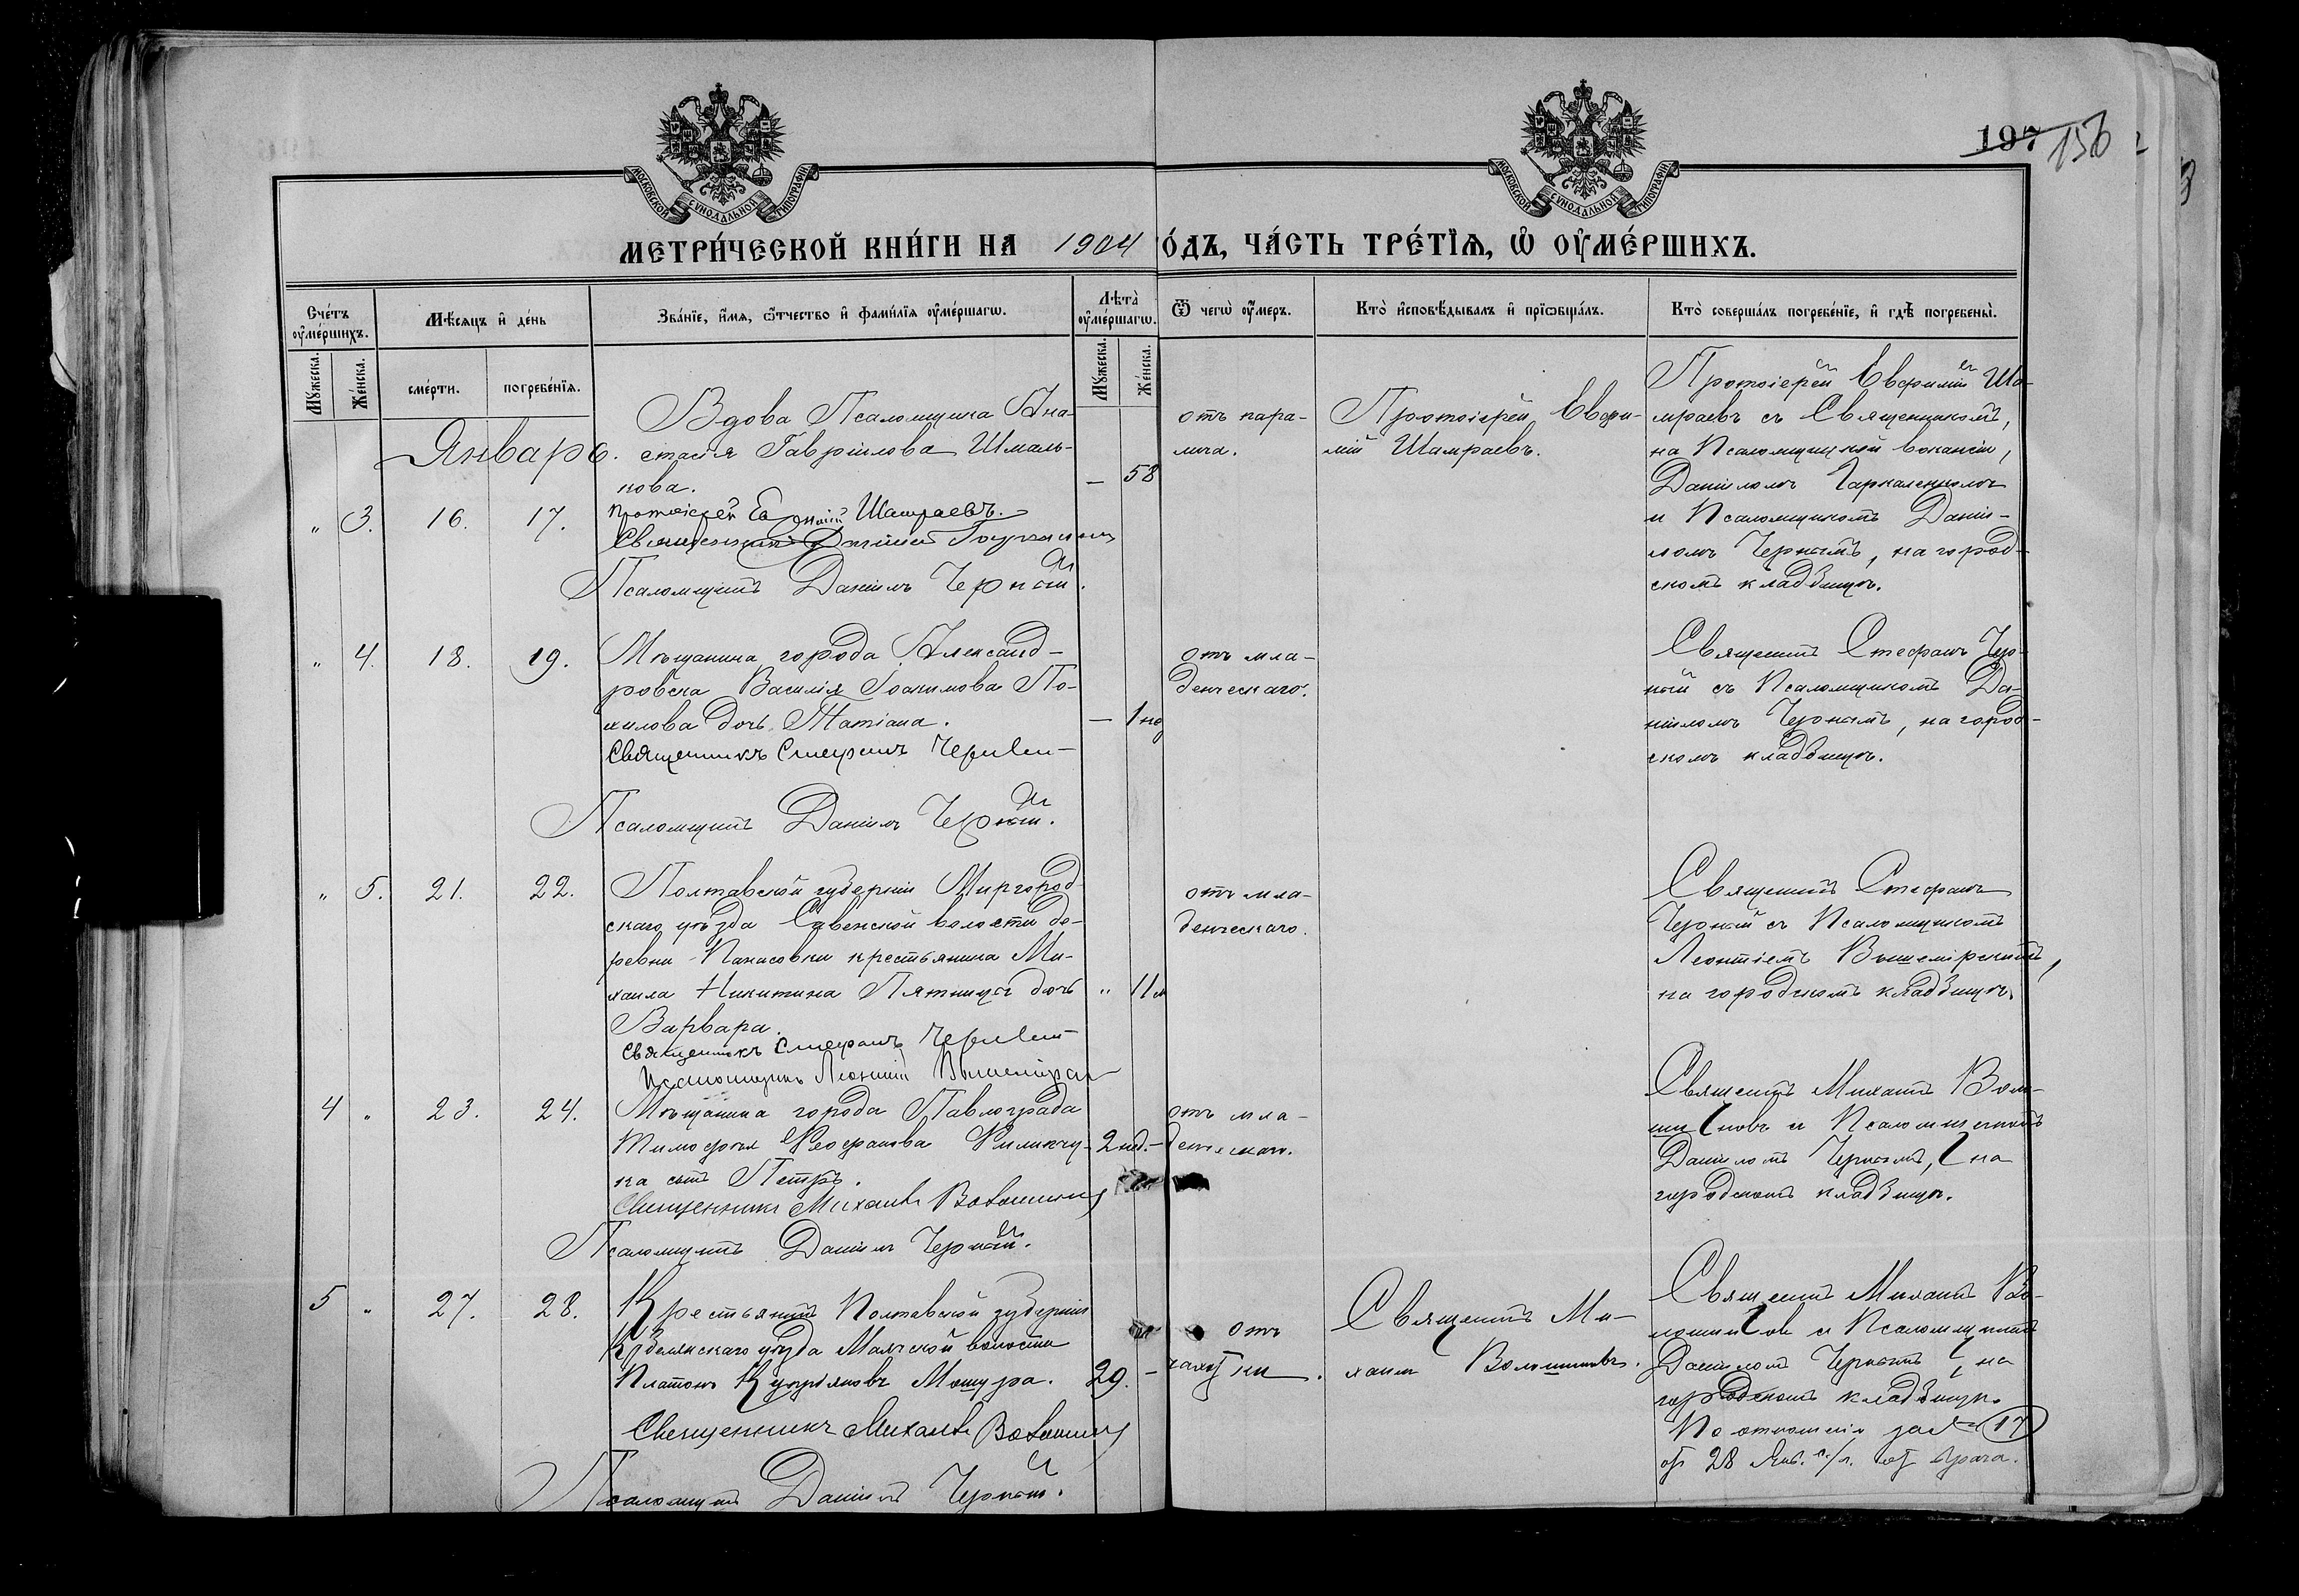 МОСКОВСКОЙ СѴНОДАЛЬНОЙ ТИПОГРАФІИ
МОСКОВСКОЙ СѴНОДАЛЬНОЙ ТИПОГРАФІИ
197 156
МЕТРИ́ЧЕСКОЙ КНИ́ГИ НА 1904 ГО́ДЪ, ЧА́СТЬ ТРЕ́ТЇѦ, Ѡ҆ ОУ҆МЕ́РШИХЪ.
Сче́тъ оу҆ме́ршихъ.
Мѣ́сяцъ и҆ де́нь
Зва́нїе, и҆́мя, ѻ҆́тчество и҆ фами́лїя оу҆ме́ршагѡ.
Лѣта̀ оу҆ме́ршагѡ.
Ѿ чегѡ̀ оу҆́меръ.
Кто̀ и҆сповѣ́дывалъ и҆ прїѡбща́лъ.
Кто̀ соверша́лъ погребе́нїе, и҆ гдѣ̀ погребены̀.
Мꙋ́жеска. Же́нска. сме́рти. погребе́нїя. Мꙋ́жеска. Же́нска.
Январь.
" 3. 16. 17.
Вдова Псаломщика Ана-
стасія Гавріилова Шмаль-
кова.
— 58
Протоіерей Шамраевъ.
Священникъ
Псаломщикъ Даніилъ Черный.
отъ пара-
лича.
Протоіерей Евфи-
мій Шамраевъ.
Протоіерей Евфимій Ша-
мраевъ съ Священникомъ,
на Псаломщицкой вакансіи,
Даніиломъ
и Псаломщикомъ Даніи-
ломъ Чернымъ, на город-
скомъ кладбищѣ.
" 4. 18. 19.
Мѣщанина города Александ-
ровска Василія Іоакимова По-
хилова дочь Татіана.
— 1 нд
Священникъ Стефанъ Черный
Псаломщикъ Даніилъ Черный.
отъ мла-
денческаго.
Священникъ Стефанъ Чер-
ный съ Псаломщикомъ Да-
ніиломъ Чернымъ, на город-
скомъ кладбищѣ.
" 5. 21. 22.
Полтавской губерніи Миргород-
скаго уѣзда Савинской волости де-
ревни Панасовки крестьянина Ми-
хаила Никитина Пятница дочь
Варвара.
" 11 м
Священникъ Стефанъ Черный
Псаломщикъ Леонтій Вышемірскій
отъ мла-
денческаго.
Священникъ Стефанъ
Черный съ Псаломщикомъ
Леонтіемъ Вышемірскимъ,
на городскомъ кладбищѣ.
4 " 23. 24.
Мѣщанина города Павлограда
Тимофея Феофанова
на сынъ Петръ.
2 нед. —
Священникъ Михаилъ Волошиновъ
Псаломщикъ Даніилъ Черный.
отъ мла-
денческаго.
Священникъ Михаилъ Воло-
шиновъ и Псаломщикомъ
Даніиломъ Чернымъ, на
городскомъ кладбищѣ.
5 " 27. 28.
Крестьянинъ Полтавской губерніи
Кобелякскаго уѣзда Маячской волости
Платонъ Кипріановъ Мошура.
29. —
Священникъ Михаилъ Волошиновъ
Псаломщикъ Даніилъ Черный.
отъ
чахотки.
Священникъ Ми-
хаилъ Волошиновъ.
Священникъ Михаилъ Во-
лошиновъ и Псаломщикъ
Даніиломъ Чернымъ, на
городскомъ кладбищѣ.
По отношенію за № 17
отъ 28 Янв. с./г. отъ врача.